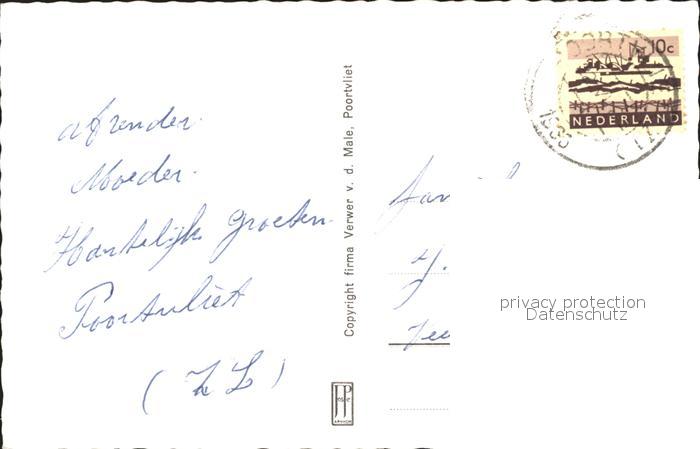 afzender.
Moeder.
Hartelijk groeten.
Poortvliet
(ZL)
Copyright firma Verwer v. d. Male, Poortvliet
JosPé
ARNHEM
10c
NEDERLAND
Fam
J.
privacy protection
Datenschutz